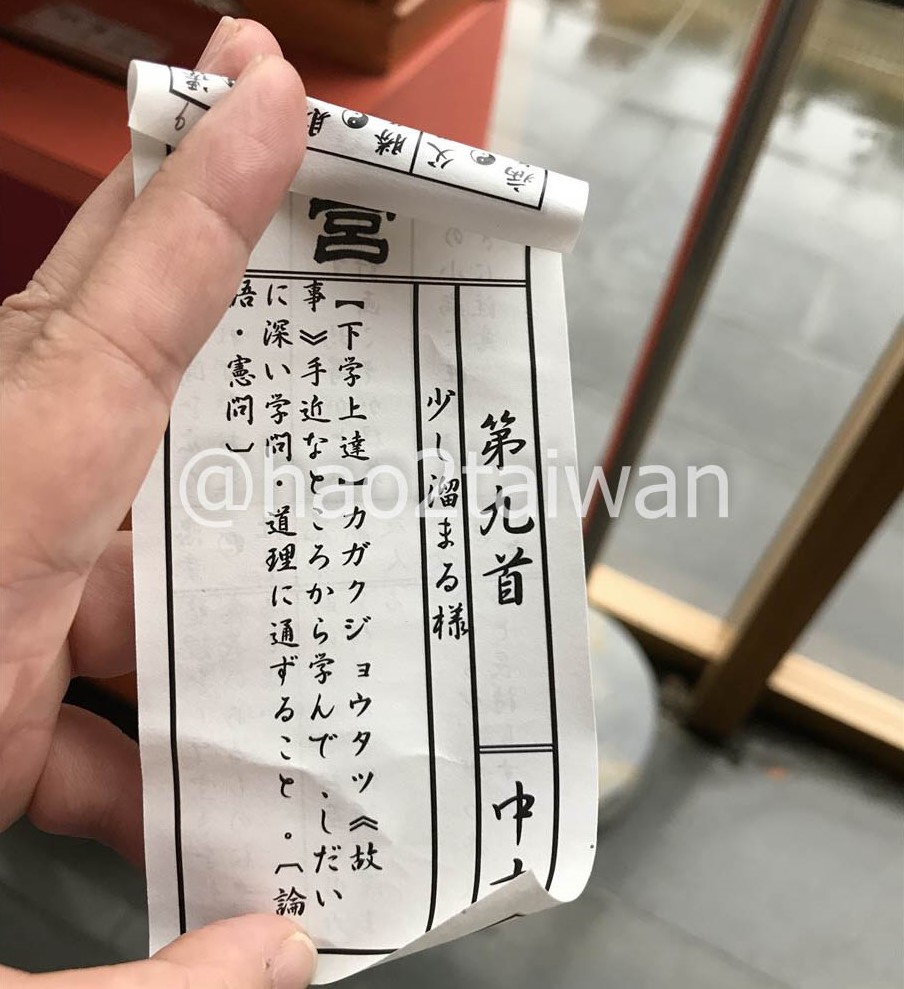 宮
第九首
中
少し溜まる様
【下学上達】カガクジョウタツ《故
事》手近なところから学んで、しだい
に深い学問・道理に通ずること。〔論
語・憲問〕
@hao2taiwan